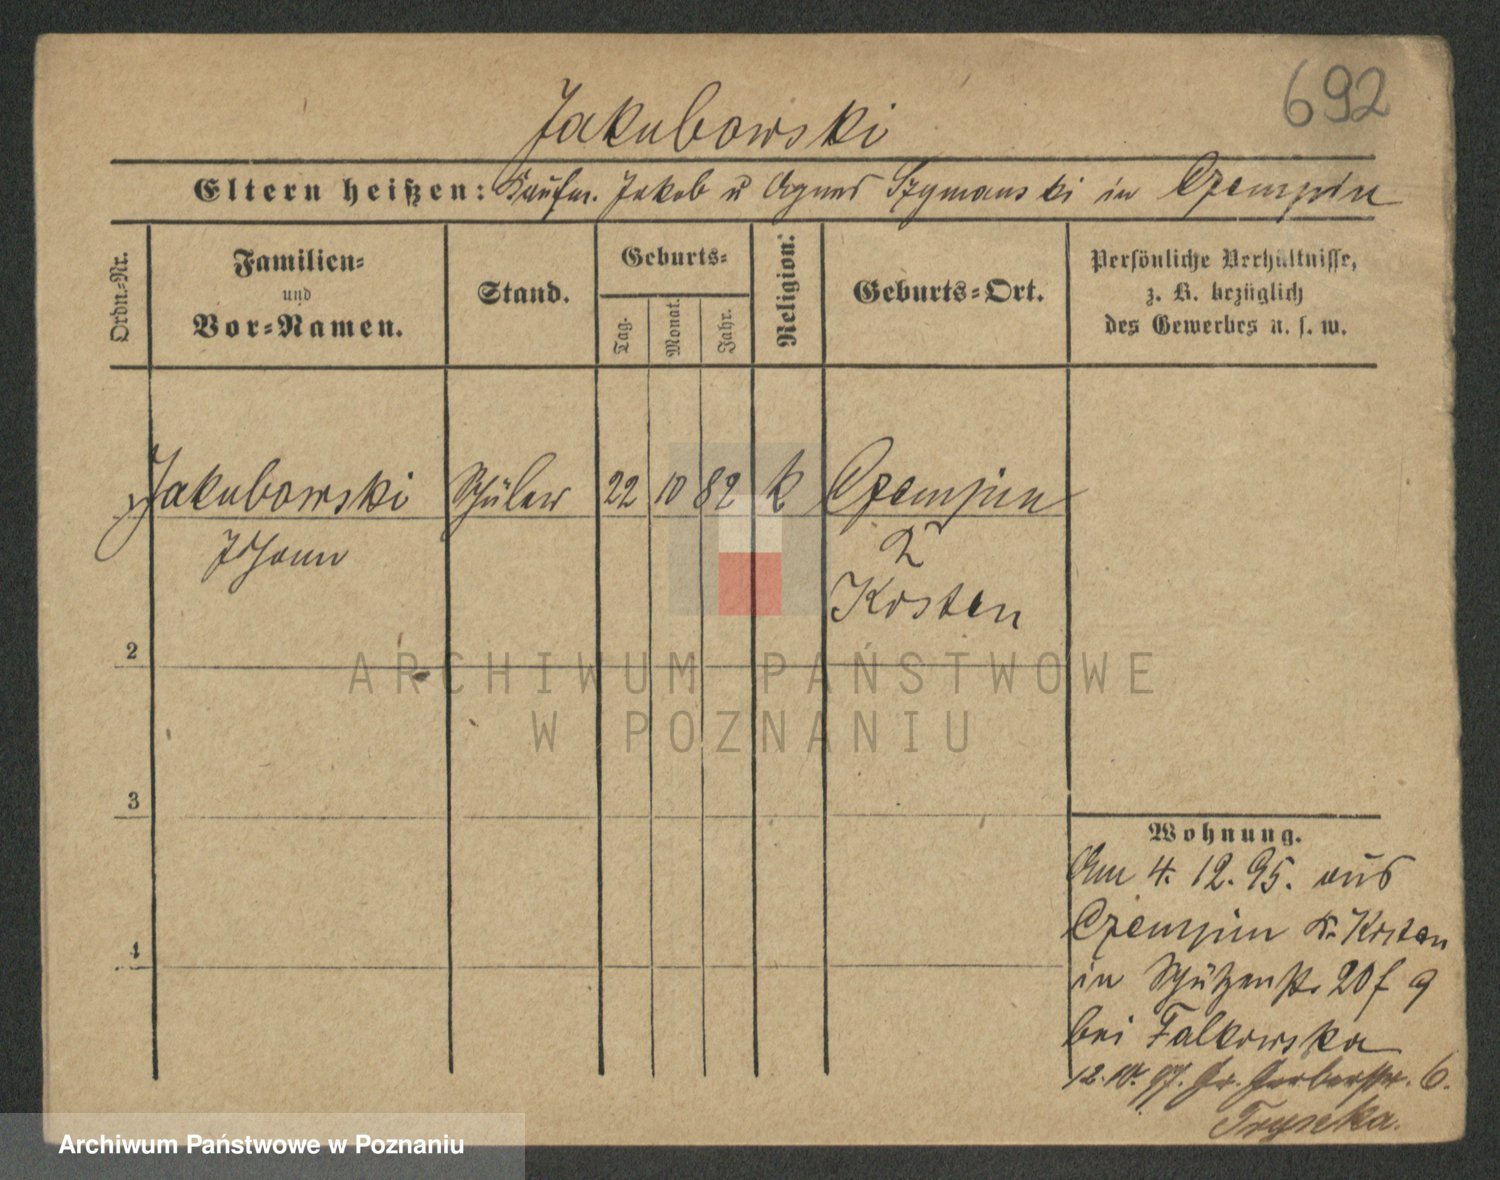 692
Jakubowski
Eltern heißen: Kaufm. Jakob u Agnes Szymanski in Czempin
Ordn.-Nr.
Familien-
und
Vor-Namen.
Stand.
Geburts-
Tag.
Monat.
Jahr.
Religion.
Geburts-Ort.
Persönliche Verhältnisse,
z. B. bezüglich
des Gewerbes u. s. w.
Jakubowski Schüler 22 10 82 k Czempin
Johann
Kosten
2
ARCHIWUM PAŃSTWOWE
W POZNANIU
3
Wohnung.
Am 4. 12. 95. aus
Czempin Kr. Kosten
in Schützenstr. 20f 9
bei Falkowska
4
12. 10. 97. Gr. Gerberstr. 6.
Archiwum Państwowe w Poznaniu